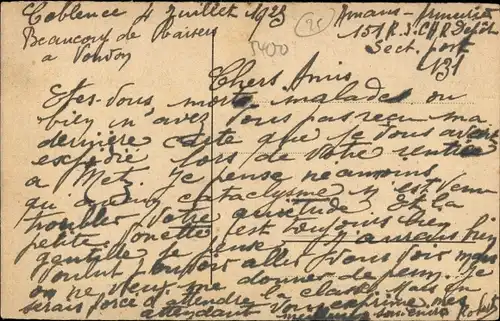 Coblence 4 Juillet 1925
Beaucoup de baisers
a Vonvon
25
5400
151 R.I.
Sect. post
131
Chers Amis
Etes-vous morts, malades ou
bien n'avez vous pas reçu ma
dernière carte que je vous avais
expédié lors de votre rentrée
a Metz. Je pense neanmoins
qu'aucun cataclysme n'est venu
troubler votre quiétude. Et la
petite est toujours bien
gentille je pense.
voulut pouvoir aller vous voir mais
on ne veut me donner de perm. Je
serais forcé d'attendre la classe. Mais en
attendant vous exprime mes
meilleurs souvenirs Robert